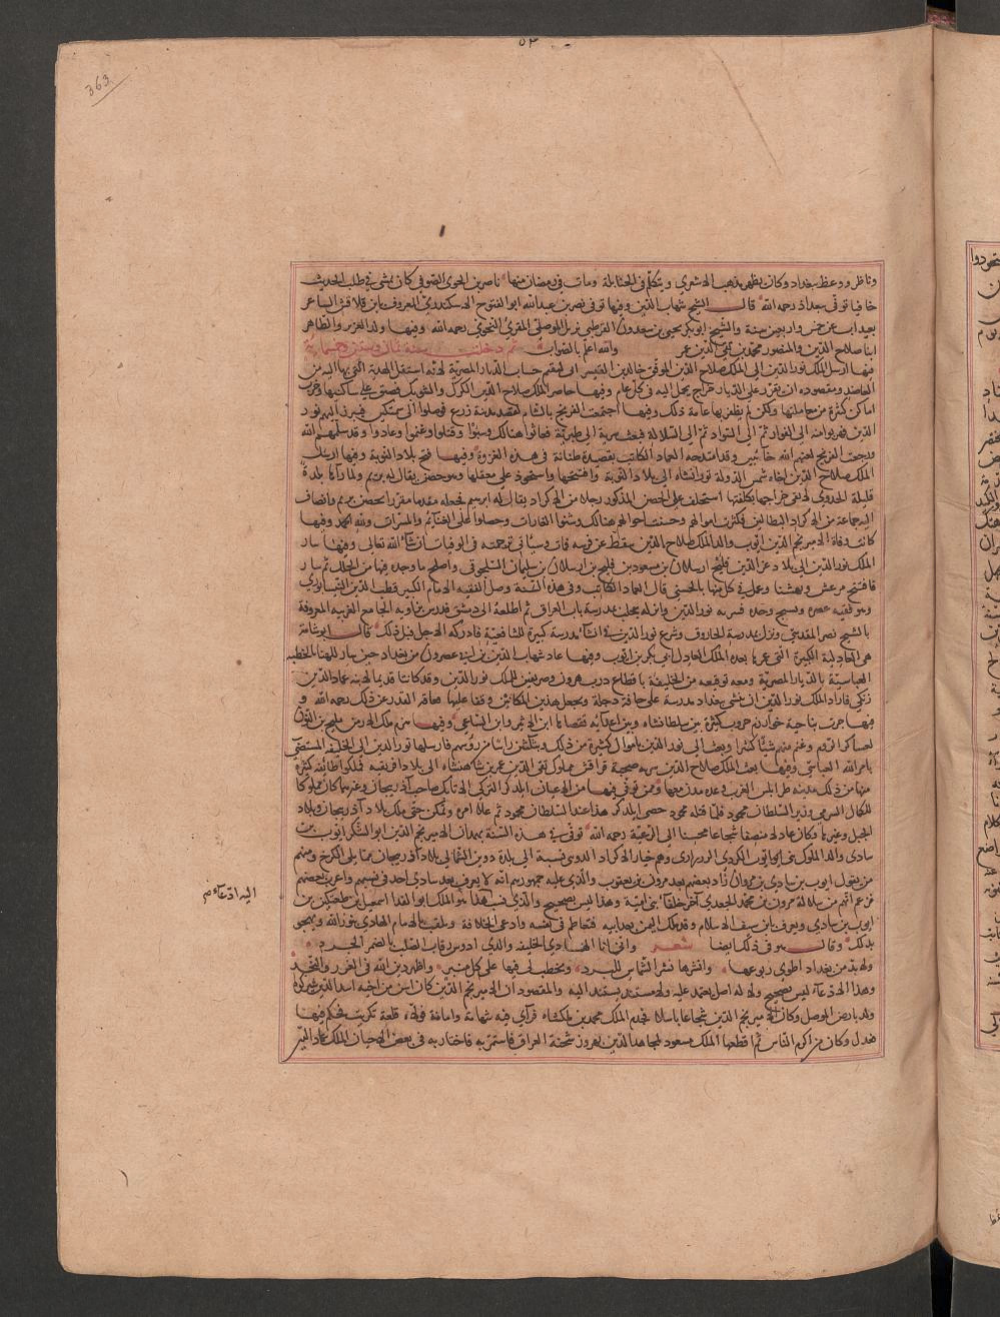 363
وناظر ووعظ ببغداد وكان يظهر مذهب الاشعري ويتكلم في الحنابلة ومات في رمضان منها ناصر بن الجوي الصوفي كان يمشي في طلب الحديث
حافيا توفي ببغداد رحمه الله قال الشيخ شهاب الدين وفيها توفي نصر بن عبدالله ابو الفتوح الاسكندري المعروف بابن قلاقس الشاعر
بعيداب عن خمس واربعين سنة والشيخ ابو بكر يحيى بن سعدون القرطبي نزيل الموصل المقري النحوي رحمه الله وفيها ولد العزيز والظاهر
ابنا صلاح الدين والمنصور محمد بن تقي الدين عمر والله اعلم بالصواب ثم دخلت سنة ثمان وستين وخمسماية
فيها ارسل الملك نور الدين الى الملك صلاح الدين الموفق خالد بن القيسراني ليقيم حساب الديار المصرية لانه استقل الهدية التي بها اليه من
العاضد ومقصوده ان يقرر على الديار خراج يحمل اليه في كل عام وفيها حاصر الملك صلاح الدين الكرك والشوبك فضيق على ساكنيها وخرب
اماكن كثيرة من معاملتها ولكن لم يظفر بها عامة ذلك وفيها اجتمعت الفرنج بالشام لقصد مدينة زرع فوصلوا الى سمسكين فبرز اليهم نور
الدين فهربوا منه الى الغوار ثم الى السواد ثم الى الشلالة فبعث سرية الى طبرية فعاثوا هنالك وسبوا وقتلوا وغنموا وعادوا وقد سلمهم الله
ورجعت الفرنج لعنهم الله خائبين وقد امتدحه العماد الكاتب بقصيدة طنانة في هذه الغزوة وفيها فتح بلاد النوبة وفيها ارسل
الملك صلاح الدين اخاه شمس الدولة توران شاه الى بلاد النوبة وافتتحها واستحوذ على معقلها وهو حصن يقال له ابريم ولما رآها بلدة
قليلة الجدوى لا يفي خراجها بكلفتها استخلف على الحصن المذكور رجلا من الاكراد يقال له ابرسيم فجعله مقدما مقررا بحصن ابريم وانضاف
اليه جماعة من الاكراد البطالين فكثرت اموالهم وحسنت احوالهم هنالك وشنوا الغارات وحصلوا على الغنائم والمسرات ولله الحمد وفيها
كانت وفاة الامير نجم الدين ايوب والد الملك صلاح الدين سقط عن فرسه فمات وستاتي ترجمته في الوفيات ان شاء الله تعالى وفيها سار
الملك نور الدين الى بلاد عز الدين قليج ارسلان بن مسعود بن قليج بن ارسلان بن سليمان السلجوقي واصلح ما وجده فيها من الخلل ثم سار
فافتتح مرعش وبهسنا وعمل في كل منها بالحسنى قال العماد الكاتب وفي هذه السنة وصل الفقيه الامام الكبير قطب الدين النيسابوري
وهو فقيه عصره ونسيج وحده فسر به نور الدين وانزله بحلب بمدرسة باب العراق ثم اطلعه الى دمشق فدرس بزاوية الجامع الغربية المعروفة
بالشيخ نصر المقدسي ونزل بمدرسة الجاروق وشرع نور الدين في انشاء مدرسة كبيرة للشافعية فادركه الاجل قبل ذلك قال ابو شامة
هي العادلية الكبيرة التي عمرها بعده الملك العادل ابي بكر بن ايوب وفيها عاد شهاب الدين بن ابي عصرون من بغداد حين سار للهنا بالخطبة
العباسية بالديار المصرية ومعه توقيع من الخليفة باقطاع درب هرون وصريفين للملك نور الدين وقد كانتا قديما لابيه عماد الدين
زنكي فاراد الملك نور الدين ان ينشي ببغداد مدرسة على حافة دجلة ويجعل هذين المكانين وقفا عليها فعاقه القدر عن ذلك رحمه الله و
فيها جرت بناحية خوارزم حروب كثيرة بين سلطان شاه وبين اعدائه تقصاها ابن الاثير وابن الساعي وفيها هزم ملك الارمن مليح بن لاون
لعساكر الروم وغنم منهم شيئا كثيرا وبعث الى نور الدين باموال كثيرة من ذلك وبثلثين راسا من رؤسهم فارسلها نور الدين الى الخليفة المستضي
بامر الله العباسي وفيها بعث الملك صلاح الدين سرية صحبة قراقش مملوك تقي الدين عمر بن شاهنشاه الى بلاد افريقية فملكوا طائفة كثيرة
منها من ذلك مدينة طرابلس الغرب وعدة مدن معها وممن توفي فيها من الاعيان ايلدكز التركي الاتابك صاحب اذربيجان وغيرها كان مملوكا
للكمال السميرمي وزير السلطان محمود فلما قتله محمود حصى ايلدكز هذا عند السلطان محمود ثم علا امره وتمكن حتى ملك بلاد آذربيجان وبلاد
الجبل وغيرها وكان عادلا منصفا شجاعا محسنا الى الرعية رحمه الله توفي في هذه السنة بهمدان الامير نجم الدين ابو الشكر ايوب بن
شادي والد الملوك بني ايوب الكردي الروادي وهم خيار الاكراد الدويني نسبة الى بلدة دوين الشمالي بلاد آذربيجان مما يلي الكرج ومنهم
من يقول ايوب بن شادي بن مروان وزاد بعضهم بعد مروان بن يعقوب والذي عليه جمهورهم انه لا يعرف بعد شادي احد في نسبهم واغرب بعضهم
فزعم انهم من سلالة مرون بن محمد الجعدي آخر خلفا بني امية وهذا ليس بصحيح والذي نسب هذا هو الملك ابو الفدا اسمعيل بن طغتكين بن
ايوب بن شادي ويعرف بابن سيف الاسلام وقد ملك اليمن بعد ابيه فتعاظم في نفسه وادعى الخلافة وتلقب بالامام الهادي بنور الله ولهجوا
بذلك وقال هو في ذلك ايضا شعر واني انا الهادي الخليفة والذي ادوس رقاب الغلب بالضمر الجرد
ولا بد من بغداد اطوي ربوعها وانشرها نشر الشماس للبرد ويخطب لي فيها على كل منبر واظهر دين الله في الغور والنجد
وهذا الادعاء ليس بصحيح ولا له اصل يعتمد عليه ولا مستند يستند اليه والمقصود ان الامير نجم الدين كان اسن من اخيه اسد الدين شيركوه
ولد بارض الموصل وكان الامير نجم الدين شجاعا باسلا خدم الملك محمد بن ملكشاه فرآى فيه شهامة وامانة فولاه قلعة تكريت فحكم فيها
فعدل وكان من اكرم الناس ثم اقطعها الملك مسعود لمجاهد الدين بهروز شحنة العراق فاستمر به فاجتاز به في بعض الاحيان الملك عماد الدين
اليه ادعاء م